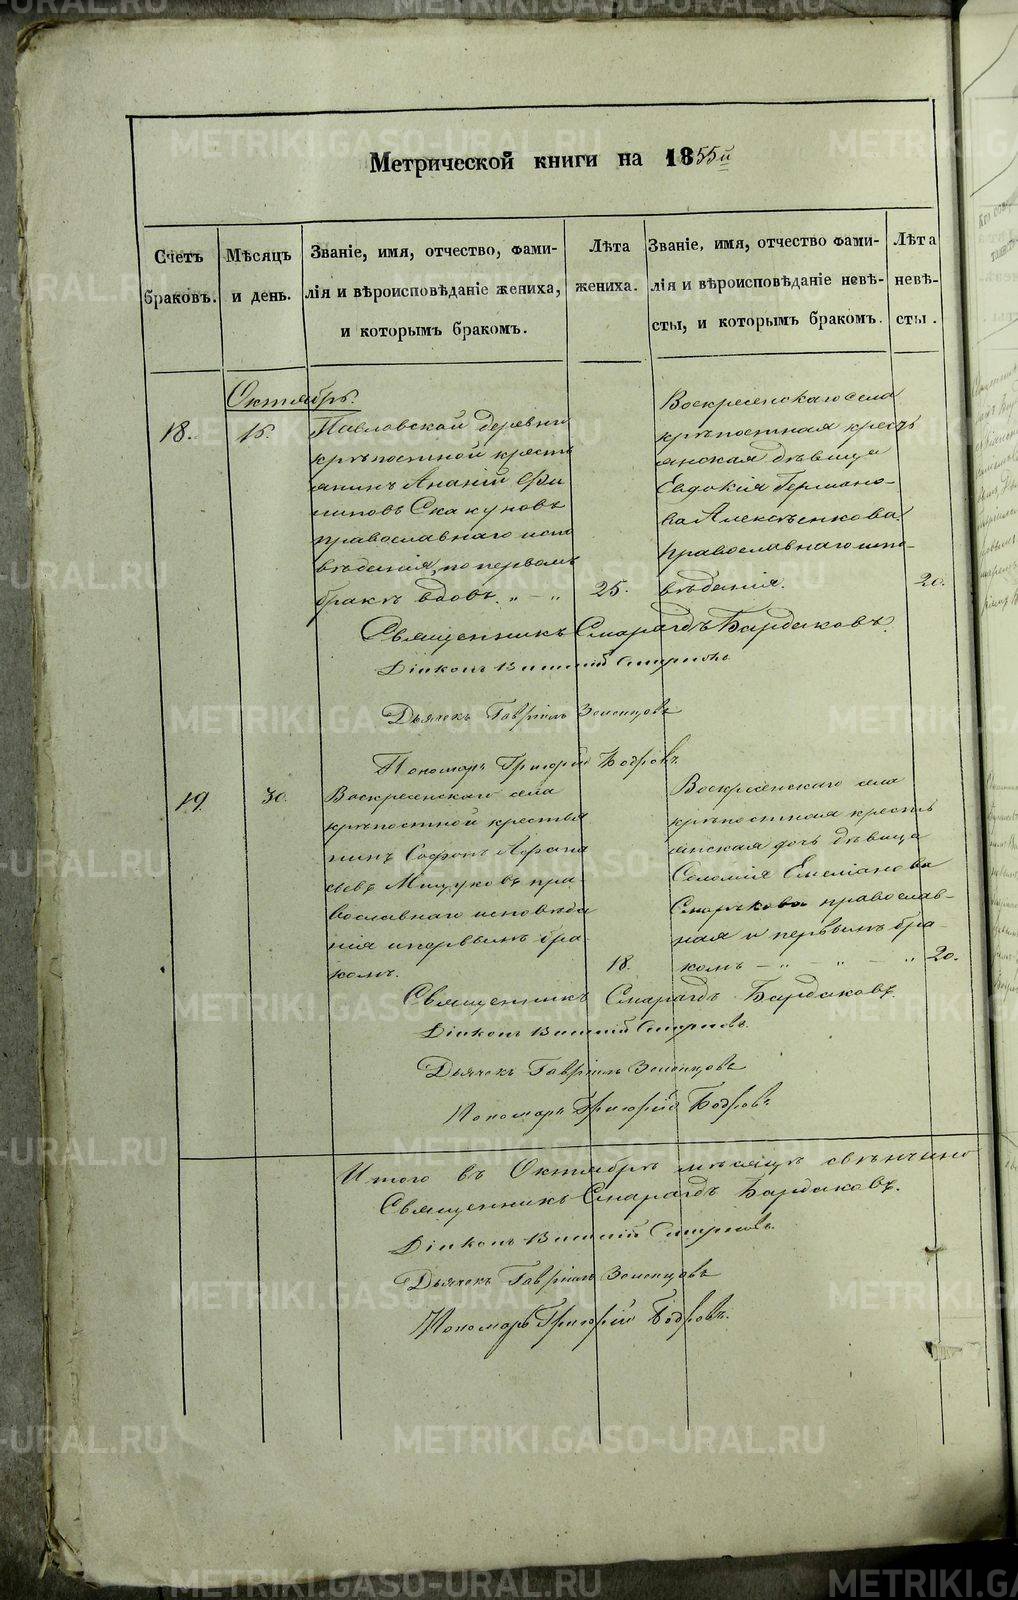 METRIKI.GASO-URAL.RU
Метрической книги на 1855й
Счетъ браковъ.
Мѣсяцъ и день.
Званіе, имя, отчество, фами-
лія и вѣроисповѣданіе жениха,
и которымъ бракомъ.
Лѣта жениха.
Званіе, имя, отчество фами-
лія и вѣроисповѣданіе невѣ-
сты, и которымъ бракомъ.
Лѣта невѣ-
сты.
Октябрь.
18.
15.
Павловской деревни
крѣпостной крестья
янинъ Ананій Фи
липовъ Скакуновъ
православнаго испо
вѣданія, по первомъ
бракѣ вдовъ. „ — „
25.
Воскресенскаго села
крѣпостная кресть
янская дѣвица
Евдокія Германо-
ва Алексѣенкова
православнаго испо-
вѣданія.
20.
Священникъ Смарагдъ Бардаковъ.
Діаконъ Смирновъ
Дьячекъ Гавріилъ Зеленцовъ
Пономарь Григорій Бобровъ
19
30.
Воскресенскаго села
крѣпостной крестья
нинъ Софонъ Афана
сьевъ Мицуковъ пра-
вославнаго исповѣда
нія и первымъ бра-
комъ.
18.
Воскресенскаго села
крѣпостная кресть
янская дочь дѣвица
Соломія Емеліанова
православ-
ная и первымъ бра-
комъ — „ — „ — „
20.
Священникъ Смарагдъ Бардаковъ.
Діаконъ Смирновъ.
Дьячекъ Гавріилъ Зеленцовъ
Пономарь Григорій Бобровъ
Итого въ Октябрѣ мѣсяцѣ свѣнчано
Священникъ Смарагдъ Бардаковъ.
Діаконъ Смирновъ.
Дьячекъ Гавріилъ Зеленцовъ
Пономарь Григорій Бобровъ.